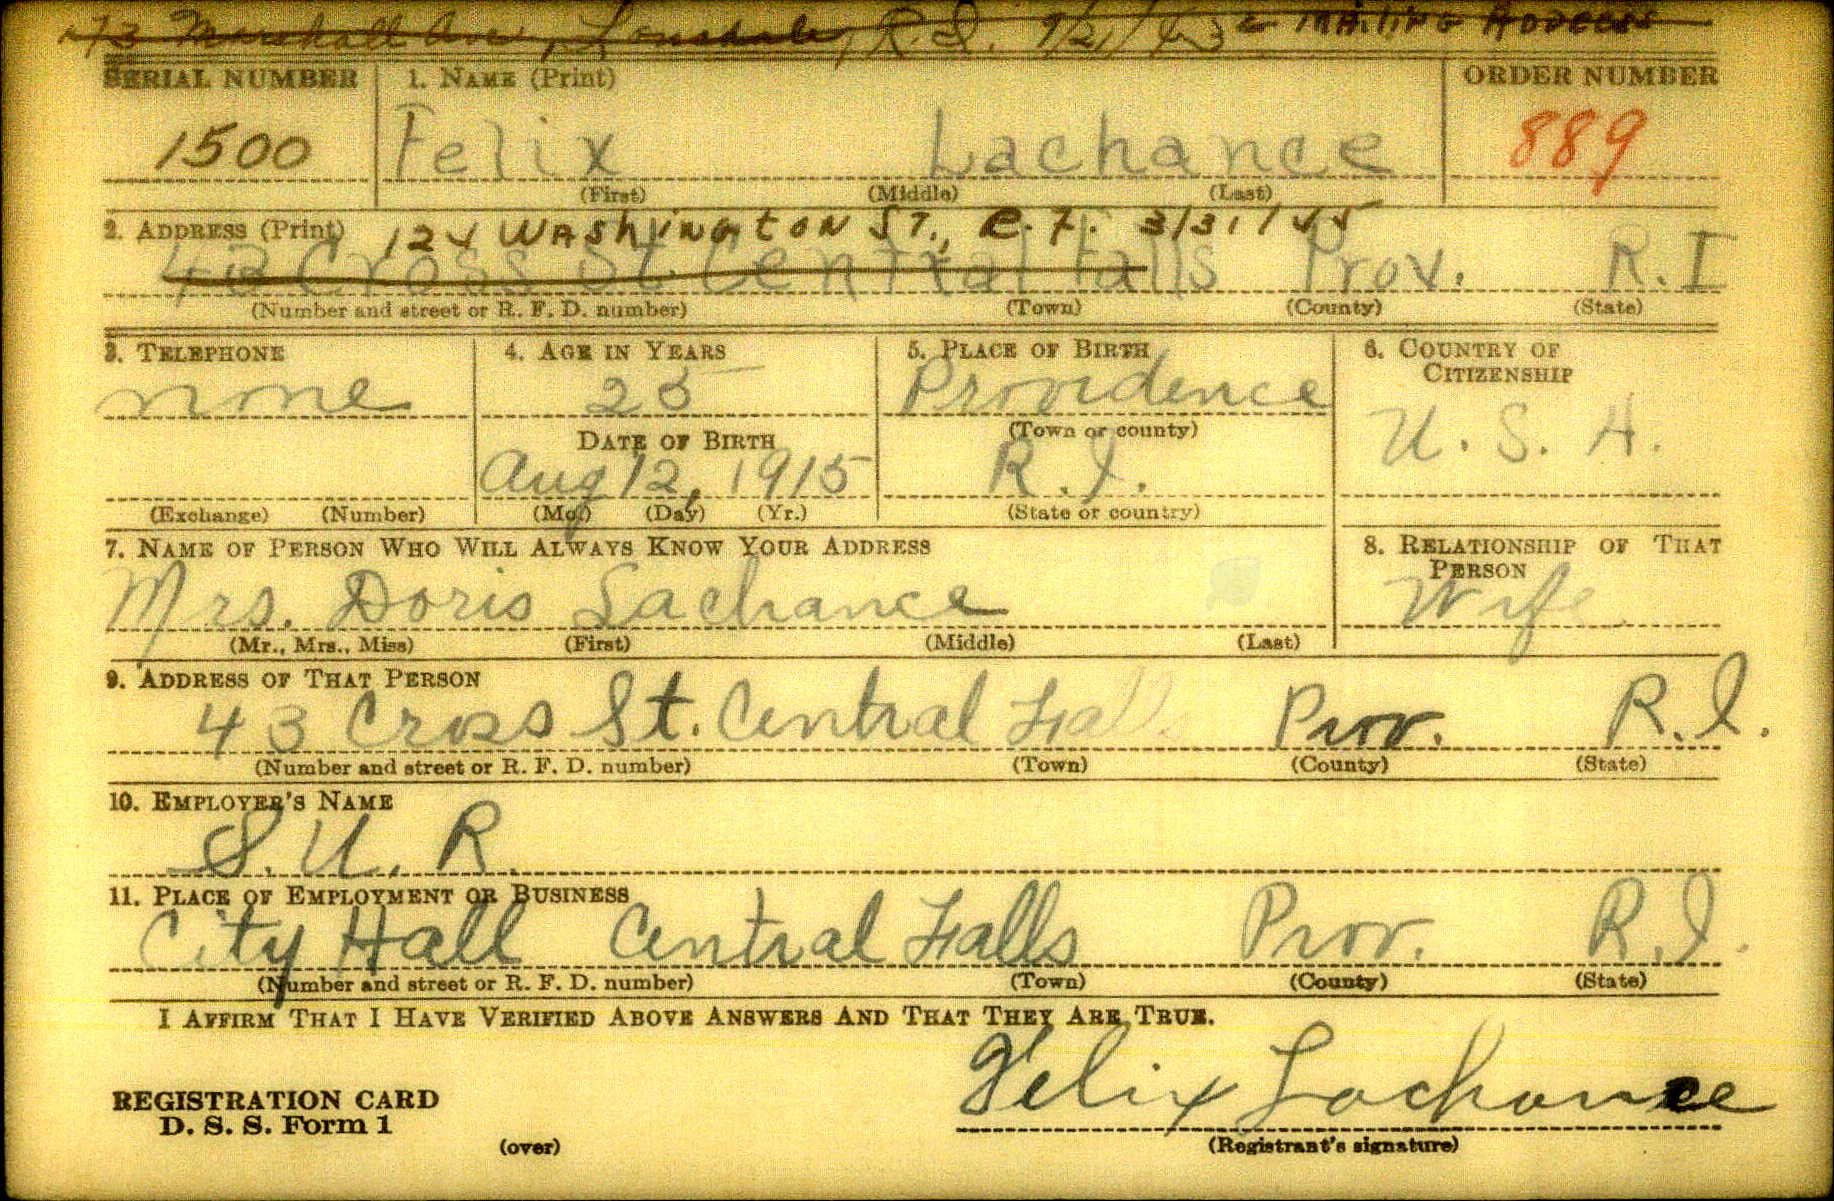 73 Marshall Ave, Lonsdale, R.I. 9/21/43 MAILING ADDRESS
SERIAL NUMBER 1. NAME (Print) ORDER NUMBER
1500 Felix Lachance 889
(First) (Middle) (Last)
2. ADDRESS (Print) 124 WAShiNGtoN ST., C.F. 3/31/45
43 Cross St. Central Falls Prov. R.I
(Number and street or R. F. D. number) (Town) (County) (State)
3. TELEPHONE 4. AGE IN YEARS 5. PLACE OF BIRTH 6. COUNTRY OF CITIZENSHIP
none 25 Providence U. S. A.
DATE OF BIRTH (Town or county)
Aug 12, 1915 R.I.
(Exchange) (Number) (Mo.) (Day) (Yr.) (State or country)
7. NAME OF PERSON WHO WILL ALWAYS KNOW YOUR ADDRESS 8. RELATIONSHIP OF THAT PERSON
Mrs. Doris Lachance Wife
(Mr., Mrs., Miss) (First) (Middle) (Last)
9. ADDRESS OF THAT PERSON
43 Cross St. Central Falls Prov. R.I.
(Number and street or R. F. D. number) (Town) (County) (State)
10. EMPLOYER'S NAME
S. U. R.
11. PLACE OF EMPLOYMENT OR BUSINESS
City Hall Central Falls Prov. R.I.
(Number and street or R. F. D. number) (Town) (County) (State)
I AFFIRM THAT I HAVE VERIFIED ABOVE ANSWERS AND THAT THEY ARE TRUE.
Felix Lachance
REGISTRATION CARD
D. S. S. Form 1
(over) (Registrant's signature)